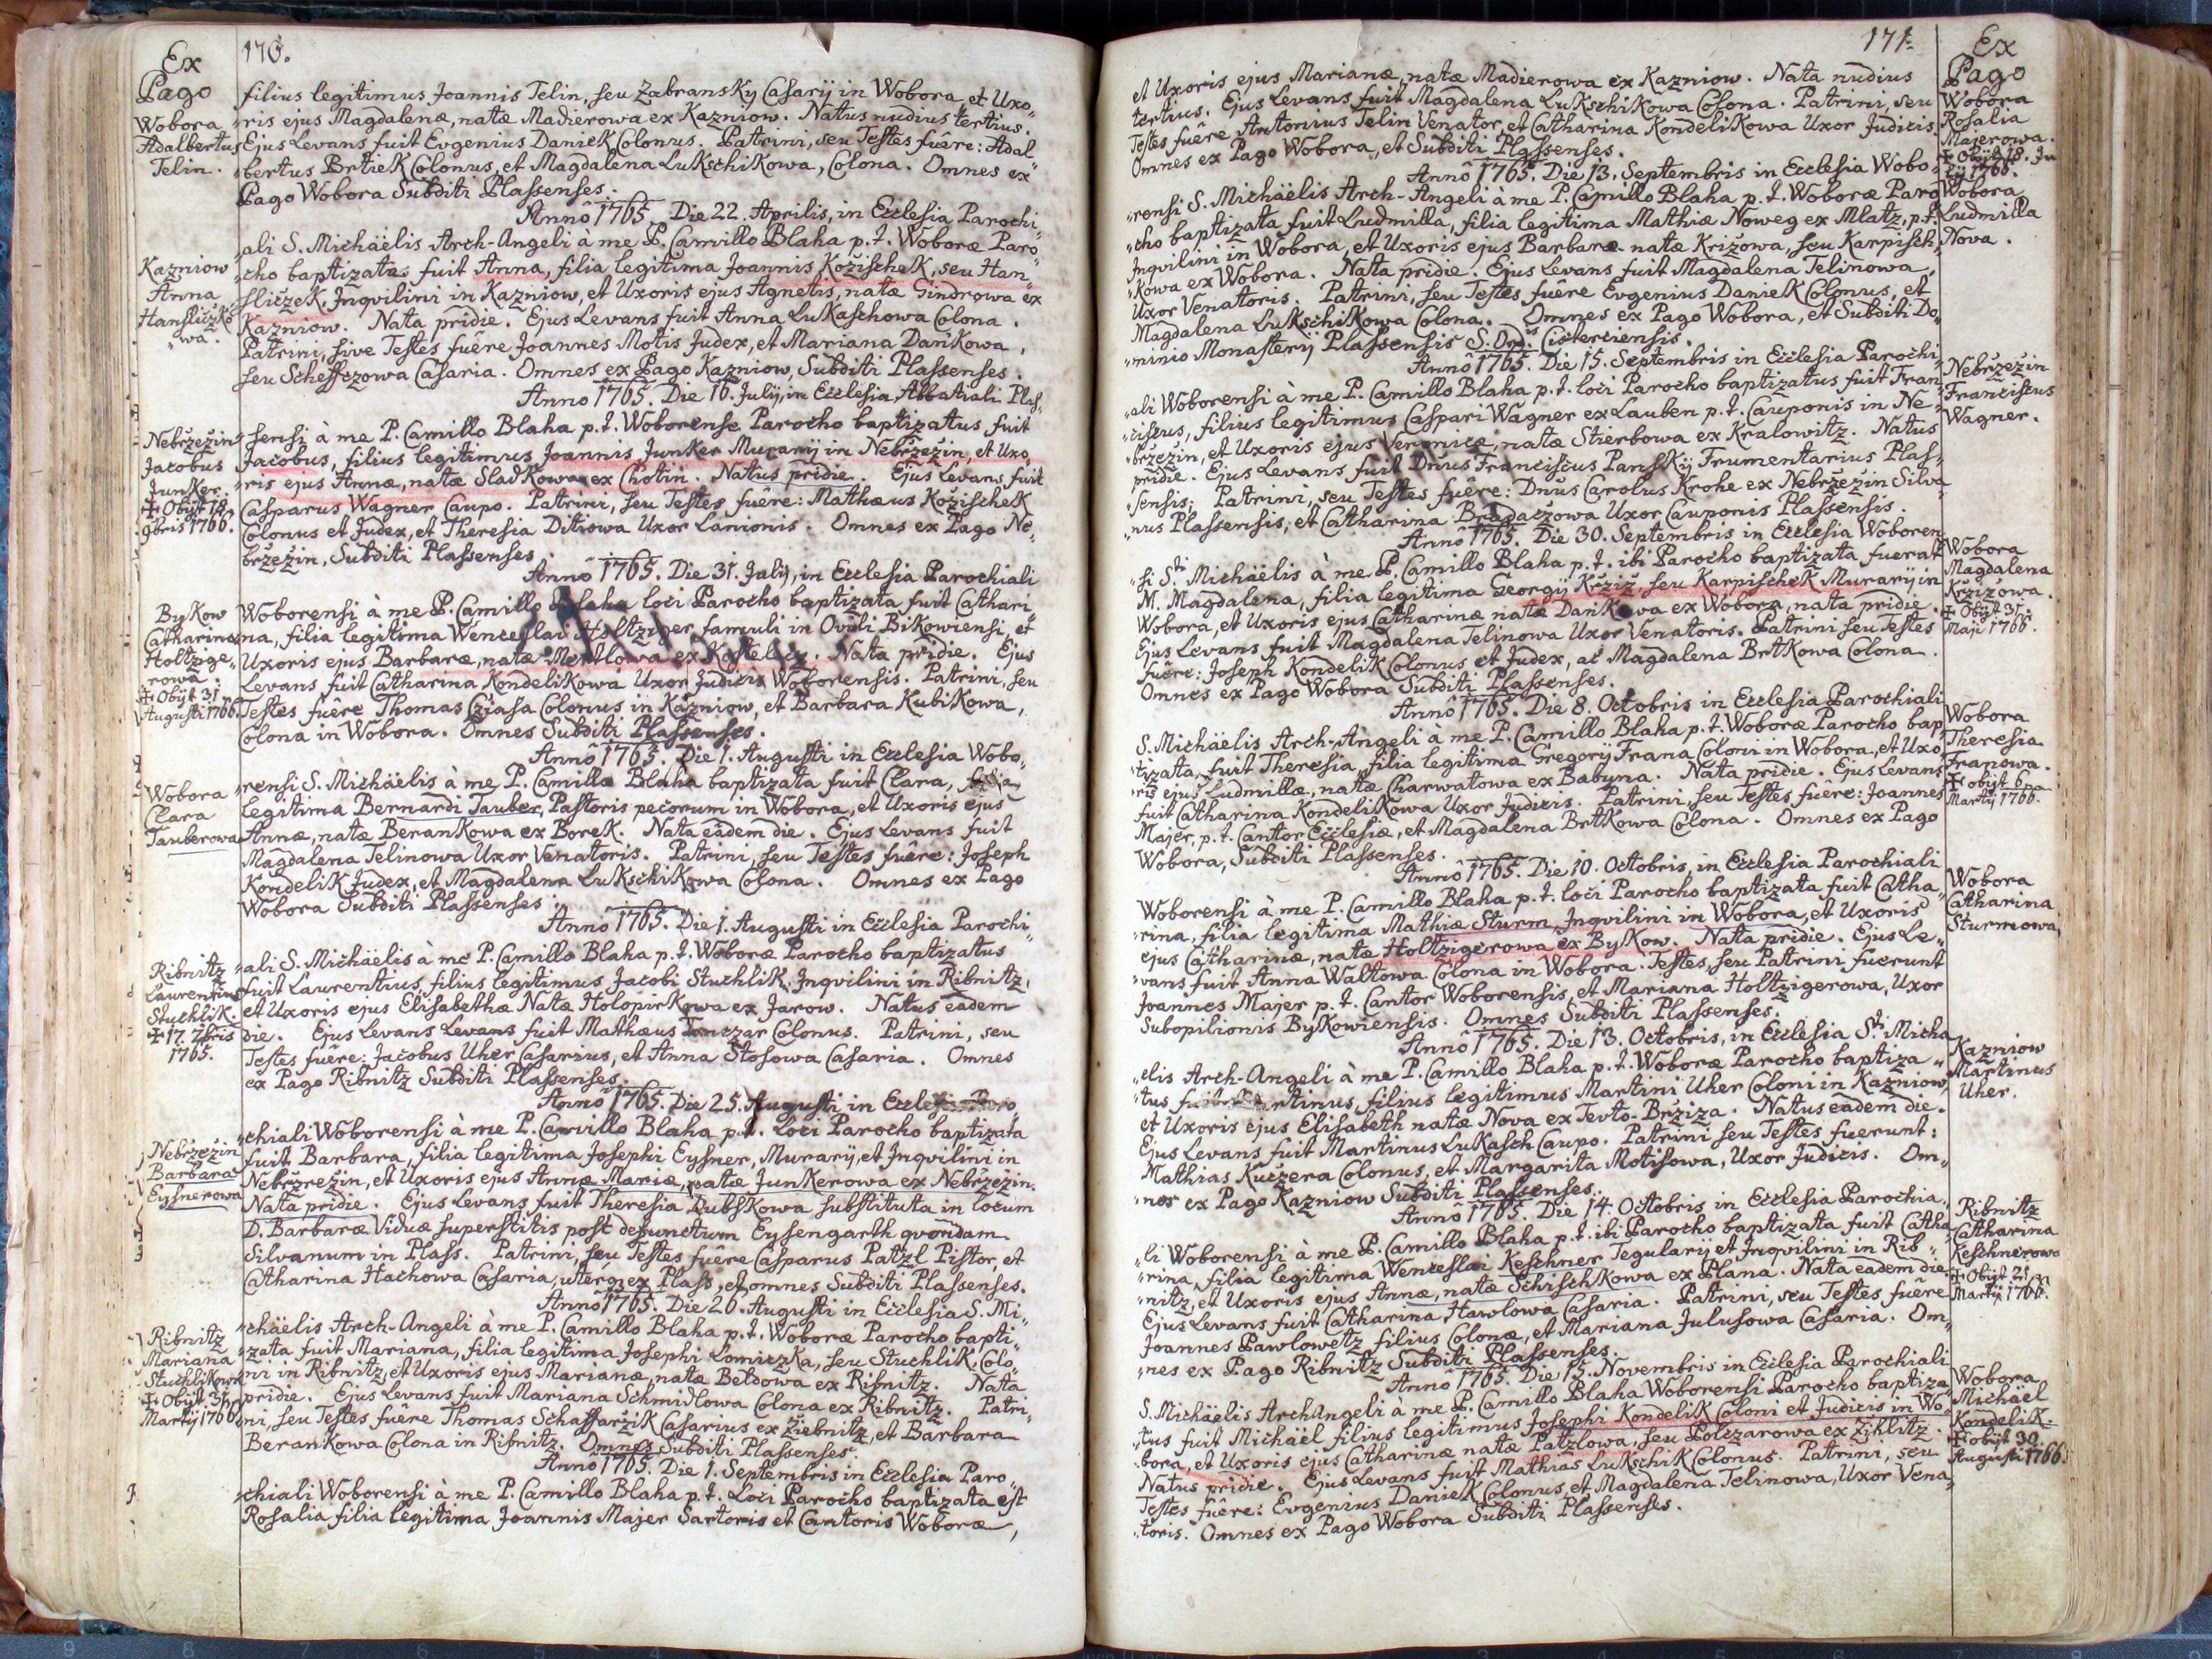 Ex
Pago
170.
filius legitimus Joannis Telin, seu Zabransky Casarij in Wobora, et Uxo„
Wobora
„ris ejus Magdalenæ, natæ Madierowa ex Kazniow. Natus nudius tertius.
Adalbertus
Ejus Levans fuit Evgenius Daniek Colonus. Patrini, seu Testes fuêre: Adal„
Telin.
„bertus Brtiek Colonus, et Magdalena Lukschikowa, Colona. Omnes ex
Pago Wobora Subditi Plassenses.
Annô 1765. Die 22. Aprilis, in Ecclesia Parochi„
„ali S. Michäelis Arch-Angeli à me P. Camillo Blaha p.t. Woboræ Paro„
Kazniow
„cho baptizata fuit Anna, filia legitima Joannis Kožischek, seu Han„
Anna
„sliczek, Inqvilini in Kazniow, et Uxoris ejus Agnetis, natæ Gindrowa ex
Hansliczko„
Kazniow. Nata pridie. Ejus Levans fuit Anna Lukaschowa Colona.
„wa.
Patrini, sive Testes fuêre Joannes Motis Judex, et Mariana Dankowa,
seu Scheffczowa Casaria. Omnes ex Pago Kazniow, Subditi Plassenses.
Anno 1765. Die 16. Julij, in Ecclesia Abbatiali Plas„
Nebržežin
„sensi à me P. Camillo Blaha p.t. Woborense Parocho baptizatus fuit
Jacobus
Jacobus, filius legitimus Joannis Junker Murarij in Nebržežin, et Uxo„
Junker.
„ris ejus Annæ, natæ Sladkowa ex Chotin. Natus pridie. Ejus Levans fuit
✝ Obijt 18.
Casparus Wagner Caupo. Patrini, seu Testes fuêre: Mathæus Kožischek
9bris 1766.
Colonus et Judex, et Theresia Ditrowa Uxor Lanionis. Omnes ex Pago Ne„
bržežin, Subditi Plassenses.
Annô 1765. Die 31. Julij, in Ecclesia Parochiali
Bykow
Woborensi à me P. Camillo Blaha loci Parocho baptizata fuit Cathari„
Catharina
na, filia legitima Wenceslai Holtziger famuli in Ovili Bikowiensi, et
Holtzige„
Uxoris ejus Barbaræ, natæ Mertlowa ex Kostelecz. Nata pridie. Ejus
rowa.
Levans fuit Catharina Kondelikowa Uxor Judicis Woborensis. Patrini, seu
✝ Obijt 31.
Augusti 1766.
Testes fuêre Thomas Cziasa Colonus in Kazniow, et Barbara Kubikowa,
Colona in Wobora. Omnes Subditi Plassenses.
Annô 1765. Die 1. Augusti in Ecclesia Wobo„
Wobora
„rensi S. Michäelis à me P. Camillo Blaha baptizata fuit Clara, filia
Clara
legitima Bernardi Tauber, Pastoris pecorum in Wobora, et Uxoris ejus
Tauberowa
Annæ, natæ Berankowa ex Borek. Nata eâdem die. Ejus Levans fuit
Magdalena Telinowa Uxor Venatoris. Patrini, seu Testes fuêre: Joseph
Kondelik Judex, et Magdalena Lukschikowa Colona. Omnes ex Pago
Wobora Subditi Plassenses.
Annô 1765. Die 1. Augusti in Ecclesia Parochi„
Ribnitz
„ali S. Michäelis à me P. Camillo Blaha p.t. Woboræ Parocho baptizatus
Laurentius
fuit Laurentius, filius legitimus Jacobi Stuchlik, Inqvilini in Ribnitz,
Stuchlik.
et Uxoris ejus Elisabethæ Natæ Holopirkowa ex Jarow. Natus eadem
✝ 17. 7bris
die. Ejus Levans Levans fuit Mathæus Tonczar Colonus. Patrini, seu
1765.
Testes fuêre: Jacobus Uher Casarius, et Anna Stosowa Casaria. Omnes
ex Pago Ribnitz Subditi Plassenses.
Annô 1765. Die 25. Augusti in Ecclesia Paro„
„chiali Woborensi à me P. Camillo Blaha p.t. Loci Parocho baptizata
Nebržežin
fuit Barbara, filia legitima Josephi Eysner, Murarij, et Inqvilini in
Barbara
Nebrzrežin, et Uxoris ejus Annæ Mariæ, natæ Junkerowa ex Nebržežin.
Eysnerowa
Nata pridie. Ejus Levans fuit Theresia Dubskowa substituta in locum
D. Barbaræ Viduæ superstitis post defunctum Eysengarth qvondam
Silvanum in Plass. Patrini, seu Testes fuêre Casparus Patzl Pistor, et
Catharina Hachowa Casaria, uterqe ex Plass, et omnes Subditi Plassenses.
Annô 1765. Die 26. Augusti in Ecclesia S. Mi„
Ribnitz
„chäelis Arch-Angeli à me P. Camillo Blaha p.t. Woboræ Parocho bapti„
Mariana
„zata fuit Mariana, filia legitima Josephi Lomiczka, seu Stuchlik, Colo„
Stuchlikowa
„ni in Ribnitz, et Uxoris ejus Marianæ, natæ Beldowa ex Ribnitz. Nata
✝ Obijt 31.
pridie. Ejus Levans fuit Mariana Schmidlowa Colona ex Ribnitz. Patri„
Martij 1766.
ni, seu Testes fuêre Thomas Schaffarzik Casarius ex Žiebnitz, et Barbara
Berankowa Colona in Ribnitz. Omnes Subditi Plassenses.
Annô 1765. Die 1. Septembris in Ecclesia Paro„
„chiali Woborensi à me P. Camillo Blaha p.t. Loci Parocho baptizata est
Rosalia filia legitima Joannis Majer Sartoris et Cantoris Woboræ,
171.
Ex
Pago
et Uxoris ejus Marianæ, natæ Madierowa ex Kazniow. Nata nudius
Wobora
tertius. Ejus Levans fuit Magdalena Lukschikowa Colona. Patrini, seu
Rosalia
Testes fuêre Antonius Telin Venator, et Catharina Kondelikowa Uxor Judicis.
Majerowa.
Omnes ex Pago Wobora, et Subditi Plassenses.
✝ Obijt 18. Ju„
lij 1766.
Annô 1765. Die 13. Septembris in Ecclesia Wobo„
Wobora
„rensi S. Michäelis Arch-Angeli à me P. Camillo Blaha p.t. Woboræ Paro„
Ludmilla
„cho baptizata fuit Ludmilla, filia legitima Mathiæ Noweg ex Mlatz, p.t.
Nova.
Inqvilini in Wobora, et Uxoris ejus Barbaræ natæ Križowa, seu Karpisch„
„kowa ex Wobora. Nata pridie. Ejus Levans fuit Magdalena Telinowa,
Uxor Venatoris. Patrini, seu Testes fuêre Evgenius Daniek Colonus, et
Magdalena Lukschikowa Colona. Omnes ex Pago Wobora, et Subditi Do„
„minio Monasterij Plassensis S. Ordis Cisterciensis.
Annô 1765. Die 15. Septembris in Ecclesia Parochi„
Nebržežin
„ali Woborensi à me P. Camillo Blaha p.t. loci Parocho baptizatus fuit Fran„
Franciscus
„ciscus, filius legitimus Caspari Wagner ex Lauben p.t. Cauponis in Ne„
Wagner.
„bržezin, et Uxoris ejus Veronicæ, natæ Stierbowa ex Kralowitz. Natus
pridie. Ejus Levans fuit Dnus Franciscus Panskij Frumentarius Plas„
„sensis; Patrini, seu Testes fuêre: Dnus Carolus Krohe ex Nebržežin Silva„
„nus Plassensis, et Catharina Bradaczowa Uxor Cauponis Plassensis.
Annô 1765. Die 30. Septembris in Ecclesia Woboren„
Wobora
„si Sti Michäelis à me P. Camillo Blaha p.t. ibi Parocho baptizata fuerat
Magdalena
M. Magdalena, filia legitima Georgij Kržiž, seu Karpischek Murarij in
Kržižowa.
Wobora, et Uxoris ejus Catharinæ natæ Dankowa ex Wobora, nata pridie.
✝ Obijt 31.
Maji 1766.
Ejus Levans fuit Magdalena Telinowa Uxor Venatoris. Patrini seu Testes
fuêre: Joseph Kondelik Colonus et Judex, ac Magdalena Brtkowa Colona.
Omnes ex Pago Wobora Subditi Plassenses.
Annô 1765. Die 8. Octobris in Ecclesia Parochiali
Wobora
S. Michäelis Arch-Angeli à me P. Camillo Blaha p.t. Woboræ Parocho bap„
Theresia
„tizata fuit Theresia, filia legitima Gregorij Frana Coloni in Wobora, et Uxo„
Franowa.
„ris ejus Ludmillæ, natæ Charwatowa ex Babyna. Nata pridie. Ejus Levans
✝ obijt 6ta
Martij 1766.
fuit Catharina Kondelikowa Uxor Judicis. Patrini, seu Testes fuêre: Joannes
Majer, p.t. Cantor Ecclesiæ, et Magdalena Brtkowa Colona. Omnes ex Pago
Wobora, Subditi Plassenses.
Annô 1765. Die 10. Octobris, in Ecclesia Parochiali
Wobora
Woborensi à me P. Camillo Blaha p.t. loci Parocho baptizata fuit Catha„
Catharina
„rina, filia legitima Mathiæ Sturm, Inqvilini in Wobora, et Uxoris
Sturmowa
ejus Catharinæ, natæ Holtzigerowa ex Bykow. Nata pridie. Ejus Le„
„vans fuit Anna Waltowa Colona in Wobora. Testes, seu Patrini fuerunt
Joannes Majer p.t. Cantor Woborensis, et Mariana Holtzigerowa, Uxor
Subopilionis Bykowiensis. Omnes Subditi Plassenses.
Annô 1765. Die 13. Octobris, in Ecclesia Sti Micha„
Kazniow
„elis Arch-Angeli à me P. Camillo Blaha p.t. Woboræ Parocho baptiza„
Martinus
„tus fuit Martinus, filius legitimus Martini Uher Coloni in Kazniow,
Uher.
et Uxoris ejus Elisabeth natæ Nova ex Tevto-Brziza. Natus eadem die.
Ejus Levans fuit Martinus Lukasch Caupo. Patrini seu Testes fuerunt:
Mathias Kuczera Colonus, et Margarita Motisowa, Uxor Judicis. Om„
„nes ex Pago Kazniow Subditi Plassenses.
Annô 1765. Die 14. Octobris in Ecclesia Parochia„
Ribnitz
„li Woborensi à me P. Camillo Blaha p.t. ibi Parocho baptizata fuit Catha„
Catharina
„rina, filia legitima Wenceslai Keschner Tegularij et Inqvilini in Rib„
Keschnerowa
„nitz, et Uxoris ejus Annæ, natæ Schischkowa ex Plana. Nata eadem die.
✝ Obijt 21.
Martij 1766.
Ejus Levans fuit Catharina Hawlowa Casaria. Patrini, seu Testes fuêre
Joannes Pawlowetz filius Colonæ, et Mariana Julusowa Casaria. Om„
„nes ex Pago Ribnitz Subditi Plassenses.
Annô 1765. Die 15. Novembris in Ecclesia Parochiali
Wobora
S. Michäelis ArchAngeli à me P. Camillo Blaha Woborensi Parocho baptiza„
Michäel
„tus fuit Michäel filius legitimus Josephi Kondelik Coloni et Judicis in Wo„
Kondelik.
„bora, et Uxoris ejus Catharinæ natæ Patzlowa, seu Polczarowa ex Žihlitz.
✝ obijt 30.
Augusti 1766.
Natus pridie. Ejus Levans fuit Mathias Lukschik Colonus. Patrini, seu
Testes fuêre: Evgenius Daniek Colonus, et Magdalena Telinowa, Uxor Vena„
„toris. Omnes ex Pago Wobora Subditi Plassenses.